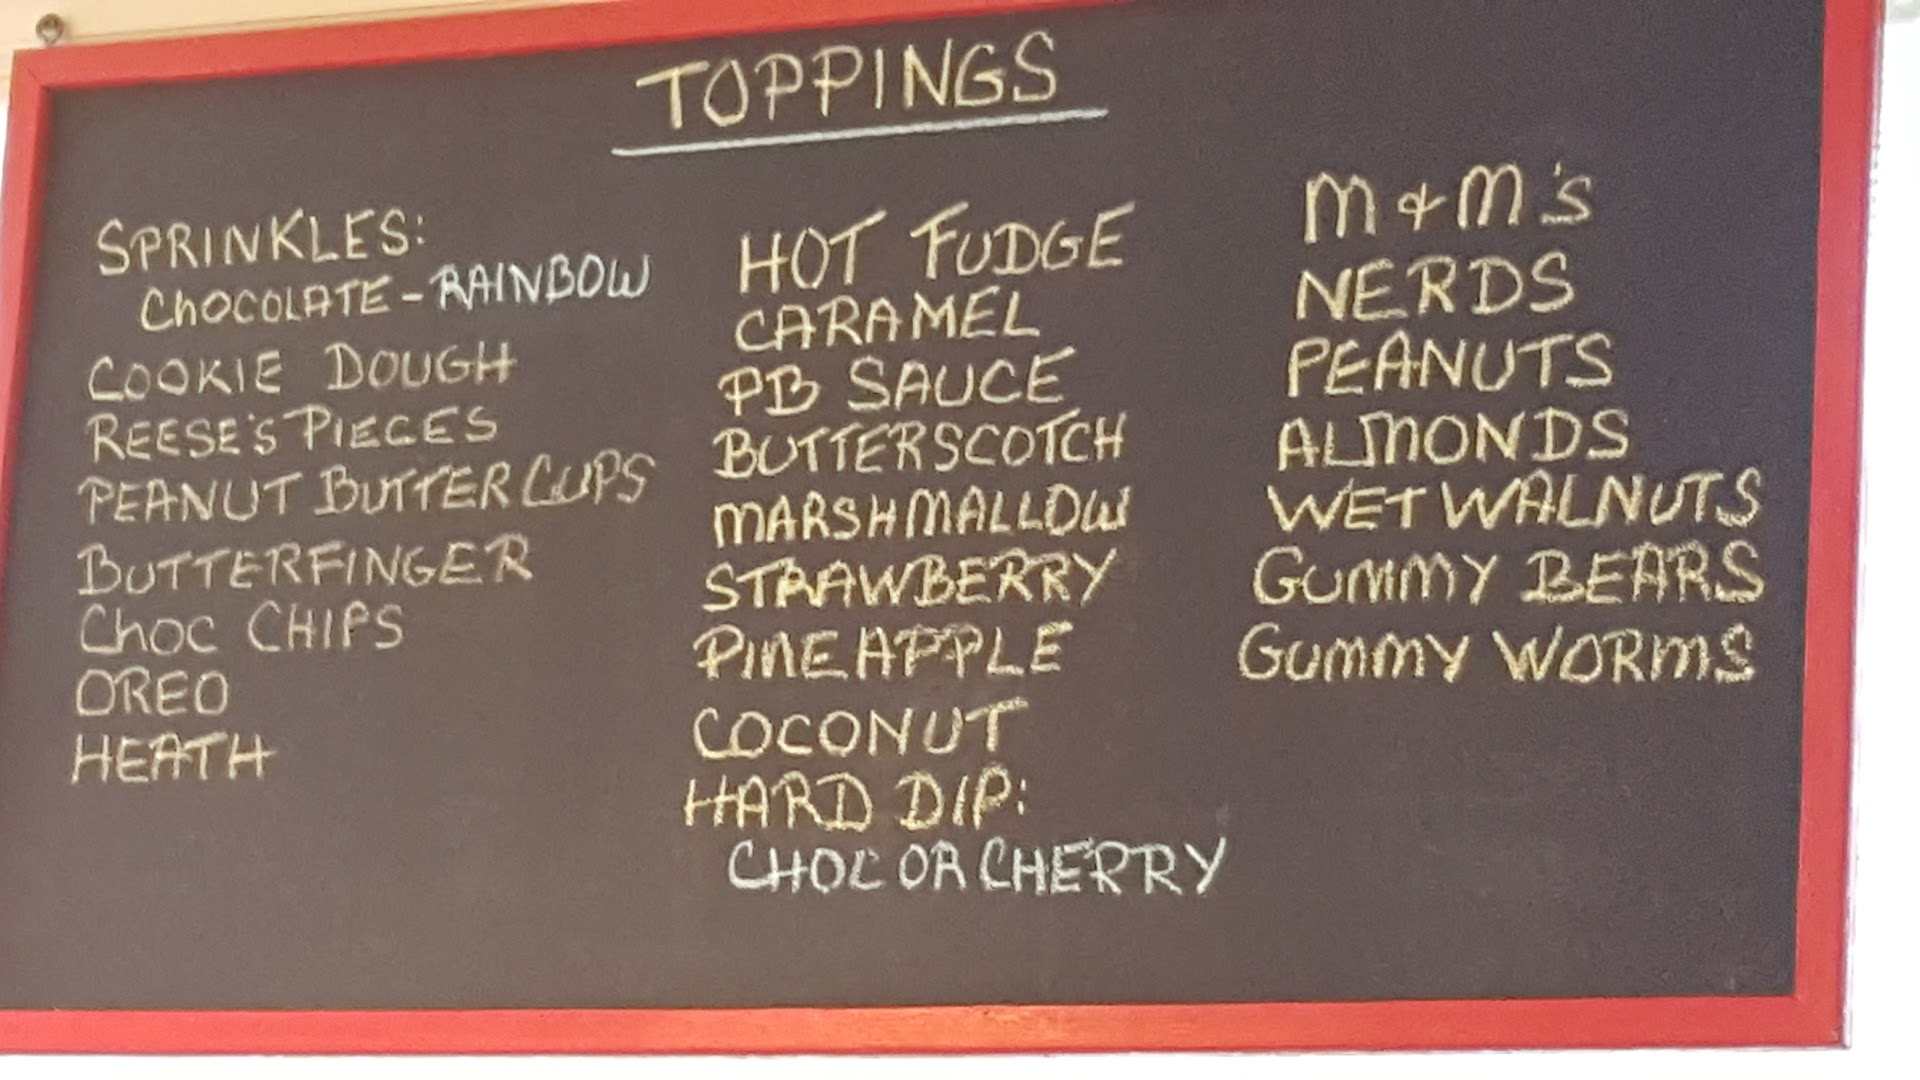 TOPPINGS
SPRINKLES:
CHOCOLATE - RAINBOW
COOKIE DOUGH
REESE'S PIECES
PEANUT BUTTER CUPS
BUTTERFINGER
CHOC CHIPS
OREO
HEATH
HOT FUDGE
CARAMEL
PB SAUCE
BUTTERSCOTCH
MARSHMALLOW
STRAWBERRY
PINEAPPLE
COCONUT
HARD DIP:
CHOC OR CHERRY
M&M's
NERDS
PEANUTS
ALMONDS
WET WALNUTS
GUMMY BEARS
GUMMY WORMS